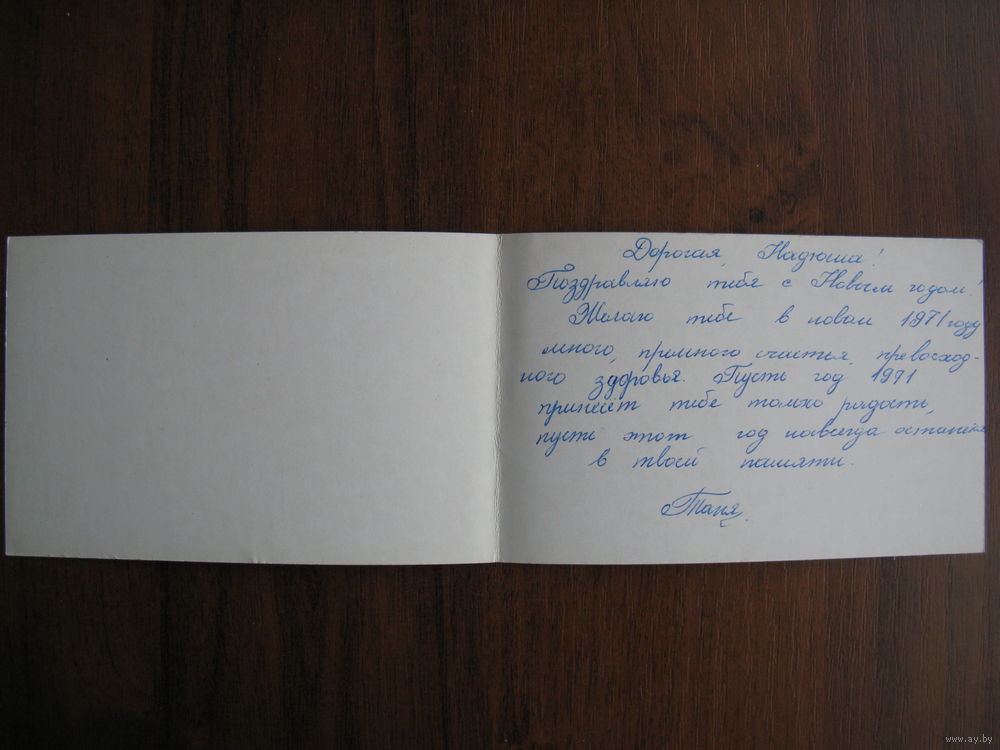 Дорогая, Надюша!
Поздравляю тебя с Новым годом!
Желаю тебе в новом 1971 году
много, примного счастья, превосход-
ного здоровья. Пусть год 1971
принесёт тебе только радость,
пусть этот год навсегда останется
в твоей памяти.
Таня.
www.ay.by